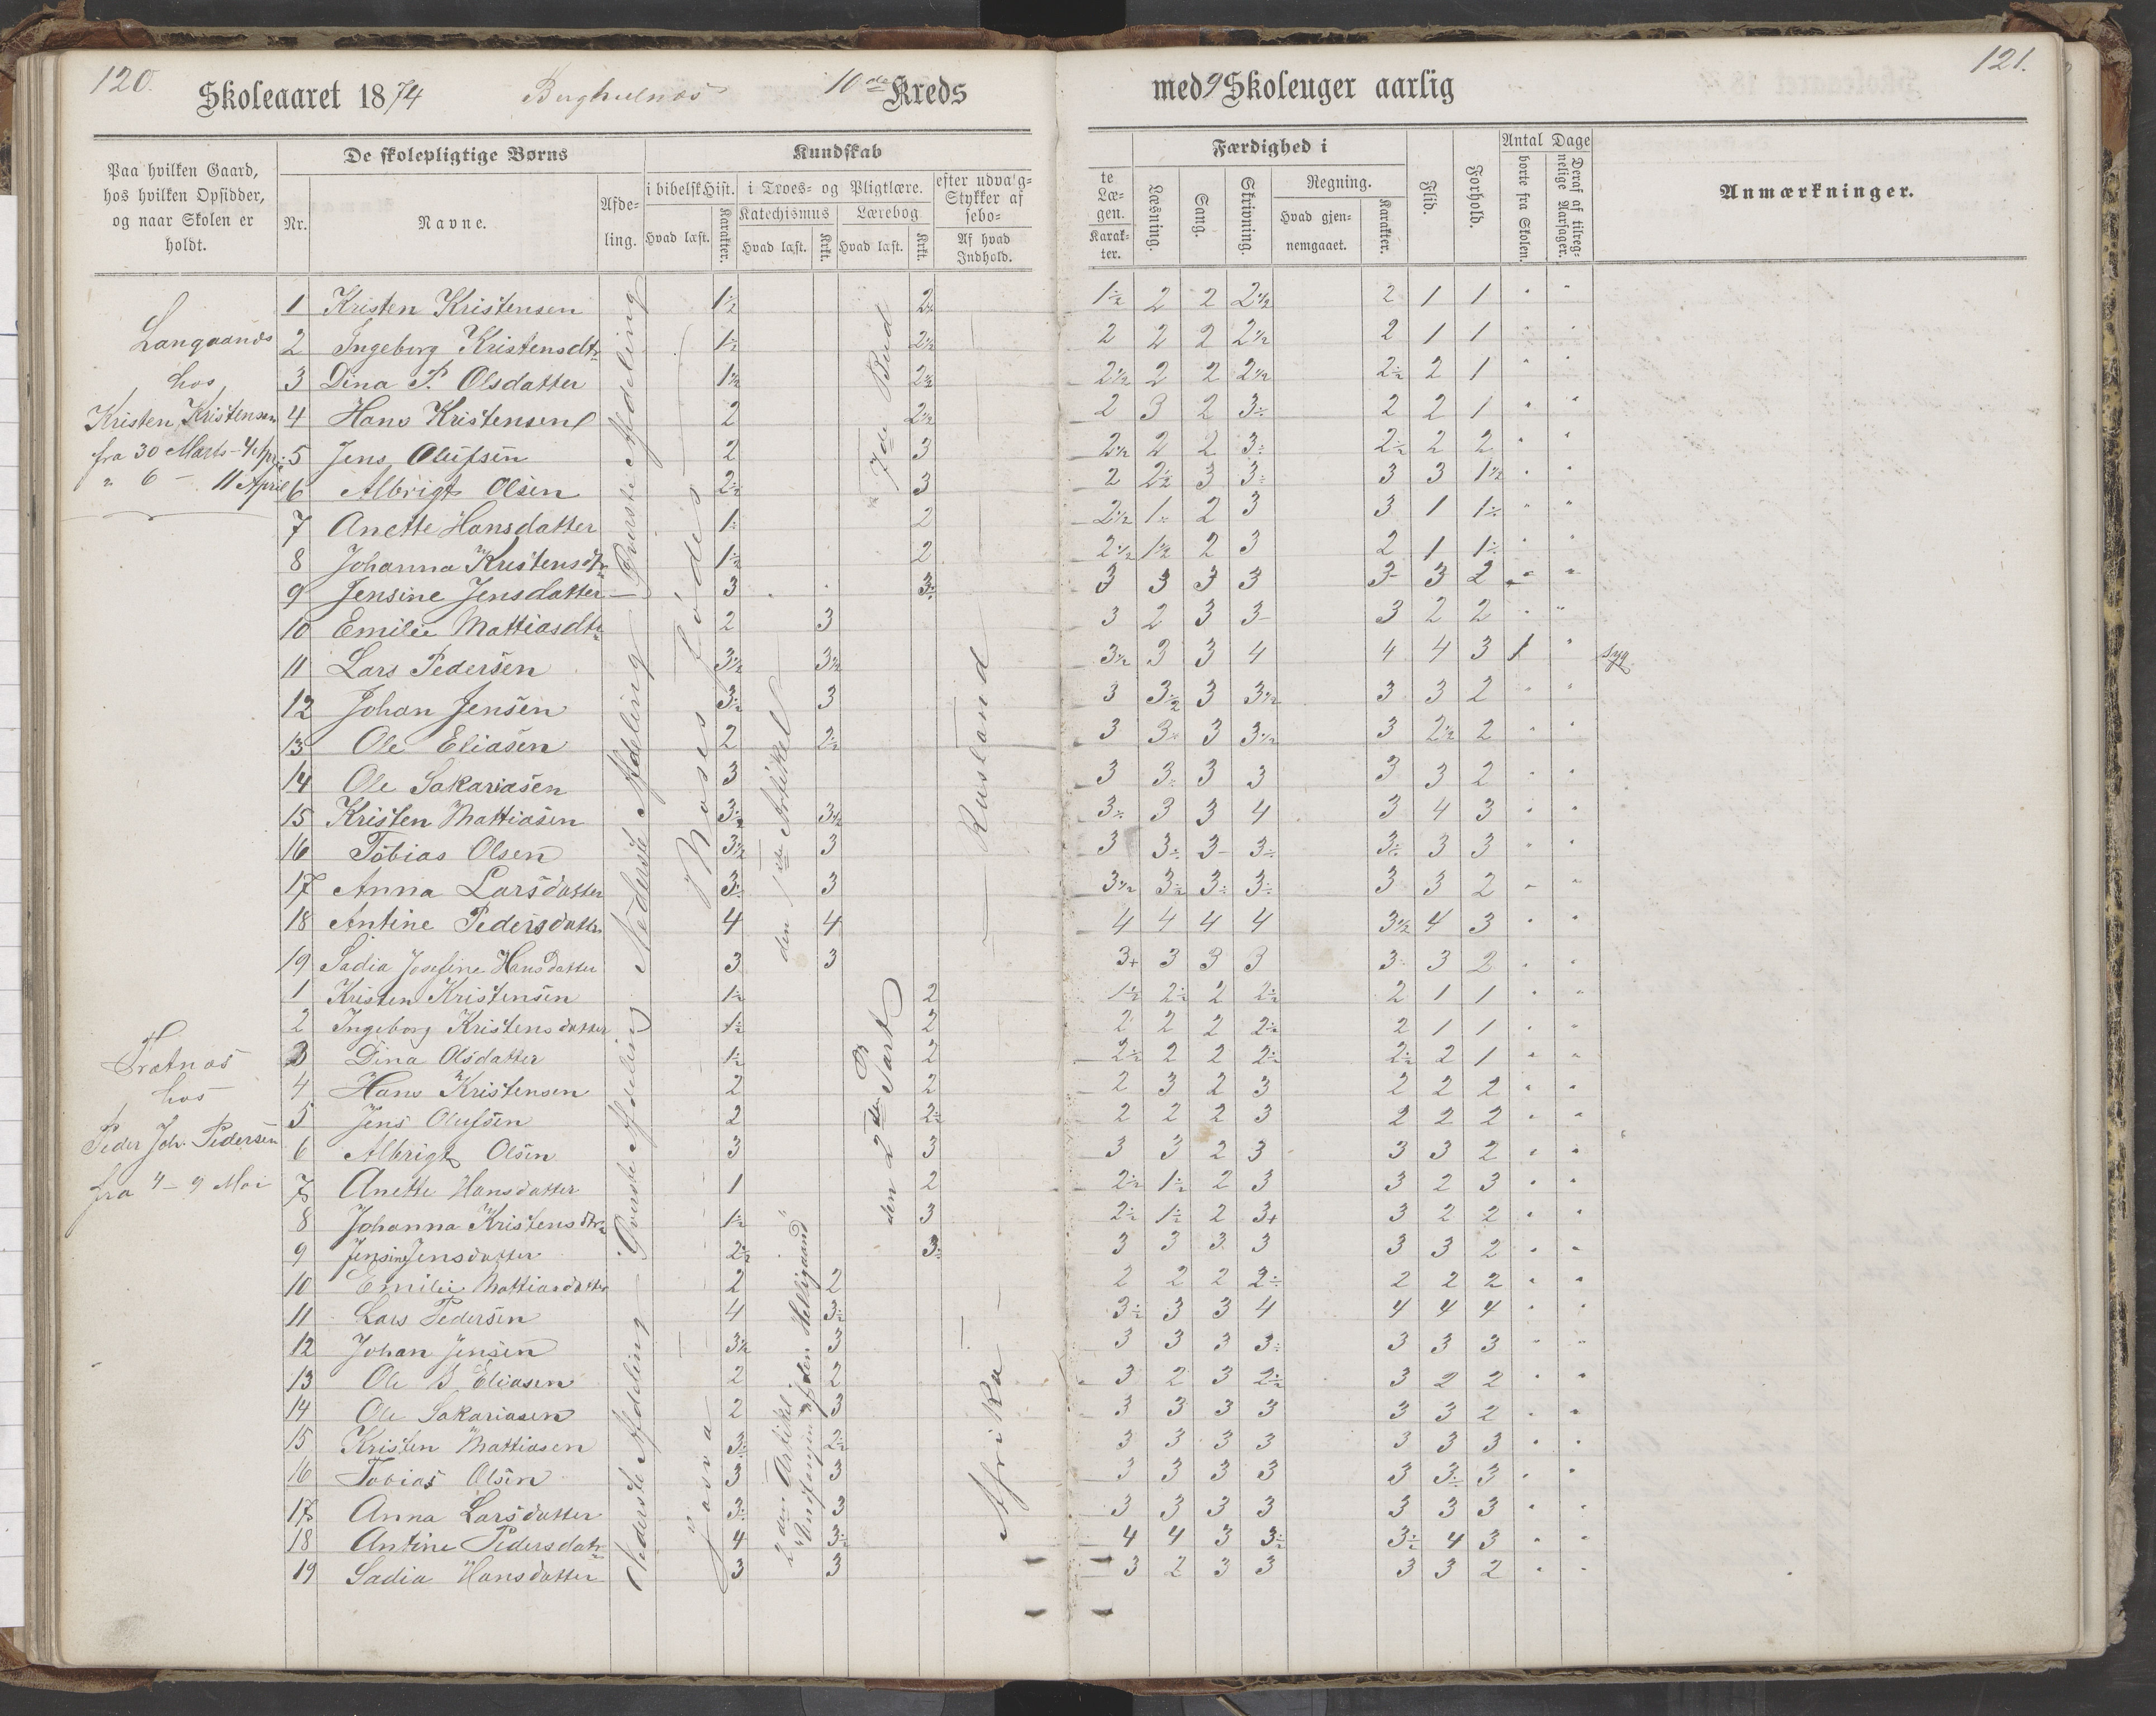 120.
Skoleaaret 1874 10de Kreds
med 9 Skoleuger aarlig
121.
Paa hvilken Gaard, hos hvilken Opsidder, og naar Skolen er holdt.
De skolepligtige Børns
Nr. Navne. Afde-ling.
Kundskab
i bibelsk Hist. i Troes- og Pligtlære. efter udvalg- te
Stykker af Læ-
sebo- gen.
Katechismus Lærebog
Hvad læst. Karakter. Hvad læst. Krkt. Hvad læst. Krkt. Af hvad Indhold. Karak-ter.
Færdighed i
Læsning. Sang. Skrivning. Regning.
Hvad gjen-nemgaaet. Karakter.
Flid. Forhold.
Antal Dage
borte fra Skolen. Deraf af tilreg-nelige Aarsager.
Anmærkninger.
Langaanes
hos
Kristen Kristensen
fra 30 Marts - 4 Apr.
" 6 - 11 April
Øverste Afdeling
Nederste Afdeling
Moses Födes
den 1ste Artikel
7de Bud
Rusland
1 Kristen Kristensen 1½ 2½ 1½ 2 2 2½ 2 1 1 " "
2 Ingeborg Kristensdtr 1½ 2½ 2 2 2 2½ 2 1 1 " "
3 Dina P. Olsdatter 1½ 2½ 2½ 2 2 2½ 2½ 2 1 " "
4 Hans Kristensen 2 2½ 2 3 2 3÷ 2 2 1 " "
5 Jens Olufsen 2 3 2½ 2 2 3÷ 2½ 2 2 " "
6 Albrigt Olsen 2½ 3 2 2½ 3 3÷ 3 3 1½ " "
7 Anette Hansdatter 1÷ 2 2½ 1÷ 2 3 3 1 1½ " "
8 Johanna Kristensdtr 1½ 2 2½ 1½ 2 3 2 1 1½ " "
9 Jensine Jensdatter 3 3÷ 3 3 3 3 3- 3 2 " "
10 Emilie Mattiasdtr 2 3 3 2 3 3- 3 2 2 " "
11 Lars Pedersen 3½ 3½ 3½ 3 3 4 4 4 3 1 " syg.
12 Johan Jensen 3½ 3 3 3½ 3 3½ 3 3 2 " "
13 Ole Eliasen 2 2½ 3 3÷ 3 3½ 3 2½ 2 " "
14 Ole Sakariasen 3 3 3÷ 3 3 3 3 2 " "
15 Kristen Mattiasen 3½ 3½ 3÷ 3 3 4 3 4 3 " "
16 Tobias Olsen 3½ 3 3 3÷ 3- 3÷ 3÷ 3 3 " "
17 Anna Larsdatter 3÷ 3 3½ 3½ 3÷ 3÷ 3 3 2 " "
18 Antine Pedersdatter 4 4 4 4 4 4 3½ 4 3 " "
19 Sadia Josefine Hansdatter 3 3 3+ 3 3 3 3÷ 3 2 " "
hos
Peder Joh. Pedersen
fra 4 - 9 Mai
Øverste Afdeling
Nederste Afdeling
Josva
2den Artikel
"Undfangen af den Helligaand"
den 2den Part
Afrika
1 Kristen Kristensen 1½ 2 1½ 2½ 2 2½ 2 1 1 " "
2 Ingeborg Kristensdatter 1½ 2 2 2 2 2½ 2 1 1 " "
3 Dina Olsdatter 1½ 2 2½ 2 2 2½ 2½ 2 1 " "
4 Hans Kristensen 2 2 2 3 2 3 2 2 2 " "
5 Jens Olufsen 2 2½ 2 2 2 3 2 2 2 " "
6 Albrigt Olsen 3 3 3 3 2 3 3 3 2 " "
7 Anette Hansdatter 1 2 2½ 1½ 2 3 3 2 3 " "
8 Johanna Kristensdtr 1½ 3 2½ 1½ 2 3+ 3 2 2 " "
9 Jensine Jensdatter 2½ 3÷ 3 3 3 3 3 3 2 " "
10 Emilie Mattiasdatter 2 2 2 2 2 2÷ 2 2 2 " "
11 Lars Pedersen 4 3÷ 3½ 3 3 4 4 4 4 " "
12 Johan Jensen 3½ 3 3 3 3 3÷ 3 3 3 " "
13 Ole B Eliasen 2 2 3 2 3 2½ 3 2 2 " "
14 Ole Sakariasen 2 3 3 3 3 3 3 3 2 " "
15 Kristen Mattiasen 3÷ 2½ 3 3 3 3 3 3 3 " "
16 Tobias Olsen 3 3 3 3 3 3 3 3÷ 3 " "
17 Anna Larsdatter 3÷ 3 3 3 3 3 3 3 3 " "
18 Antine Pedersdatr 4 3½ 4 4 3 3½ 3½ 4 3 " "
19 Sadia Hansdatter 3 3 3 2 3 3 3 3 2 " "